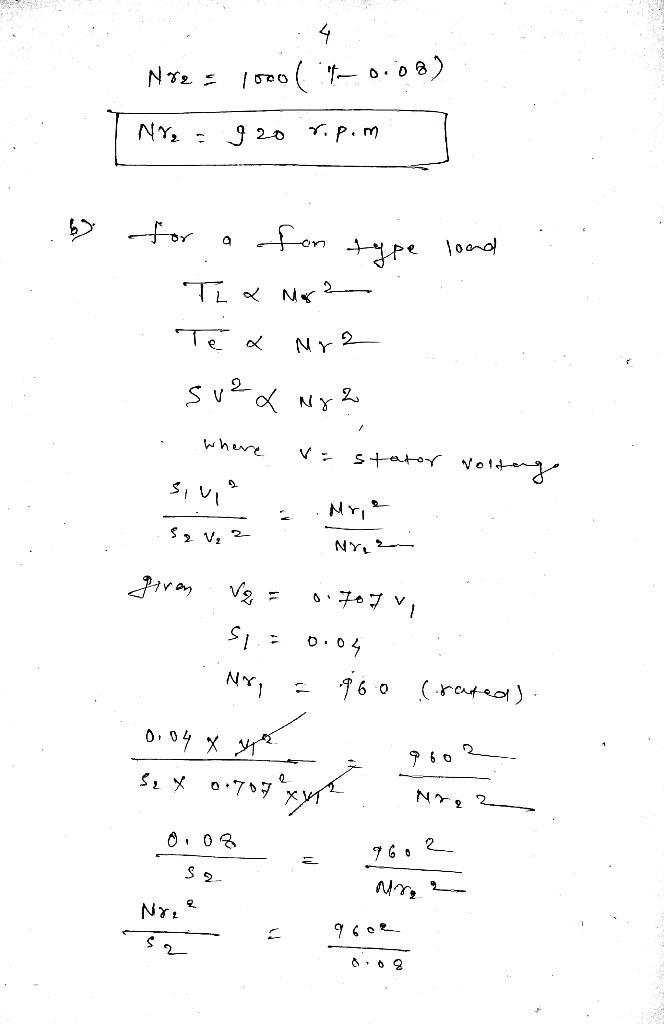 4
Nr2 = 1000(1-0.08)
Nr2 = 920 r.p.m
b) for a fan type load
TL α Nr2
Te α Nr2
SV2 α Nr2
where V = stator voltage
S1V12 / S2V22 = Nr12 / Nr22
given V2 = 0.707 V1
S1 = 0.04
Nr1 = 960 (rated).
0.04 x V12 / S2 x 0.7072 x V12 = 9602 / Nr22
0.08 / S2 = 9602 / Nr22
Nr22 / S2 = 9602 / 0.08